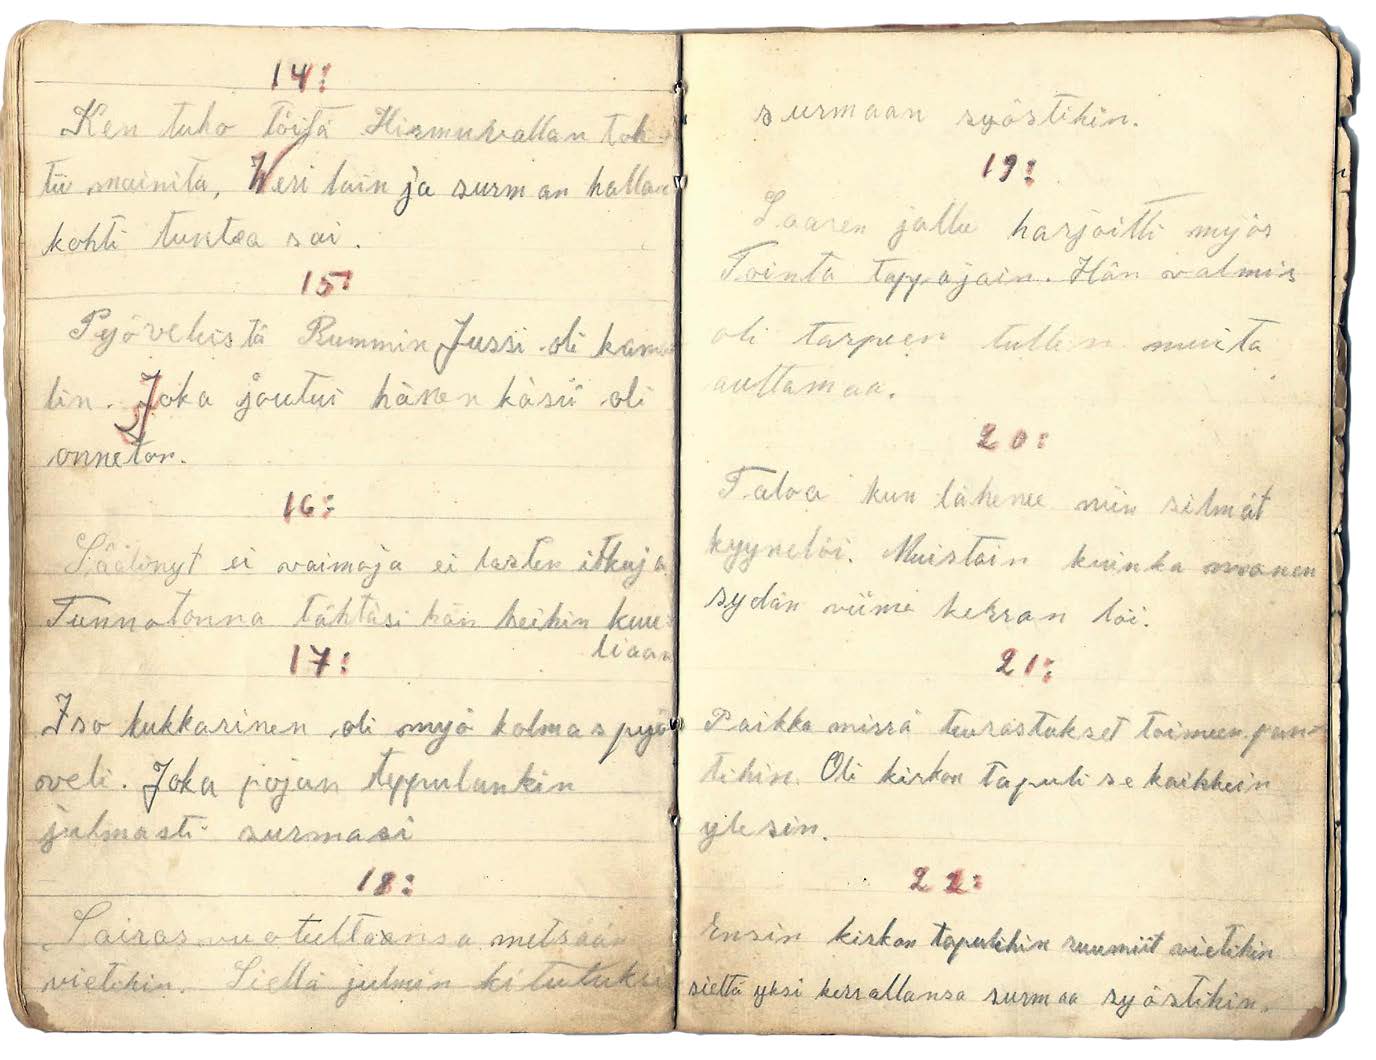 14:
Ken tuho töitä Hirmuvallan toh-
tii mainita, Weri lain ja surman hallan
kohti tuntea sai.
15:
Pyövelistä Rummin Jussi oli kama
lin. Joka joutui hänen käsii oli
onneton.
16:
Säälinyt ei vaimoja ei lasten itkuja
Tunnotonna tähtäsi hän heihin kuu-
liaan
17:
Iso kukkarinen oli myö kolmas pyö
oveli. Joka pojan teppulankin
julmasti surmasi
18:
Sairas vuoteeltaansa metsään
vietihin. Siellä julmin kitutuksi
surmaan syöstihin.
19:
Saaren jallu harjoitti myös
Tointa tappajain. Hän valmis
oli tarpeen tullen muita
auttamaa.
20:
Taloa kun lähenee niin silmät
kyynelöi. Muistain kuinka monen
sydän viime kerran löi.
21:
Paikka missä teurastukset toimeen pan-
tihin. Oli kirkon tapuli se kaikkein
ylesin.
22:
Ensin kirkon tapulihin ruumiit vietihin
sieltä yksi kerrallansa surmaa syöstihin.